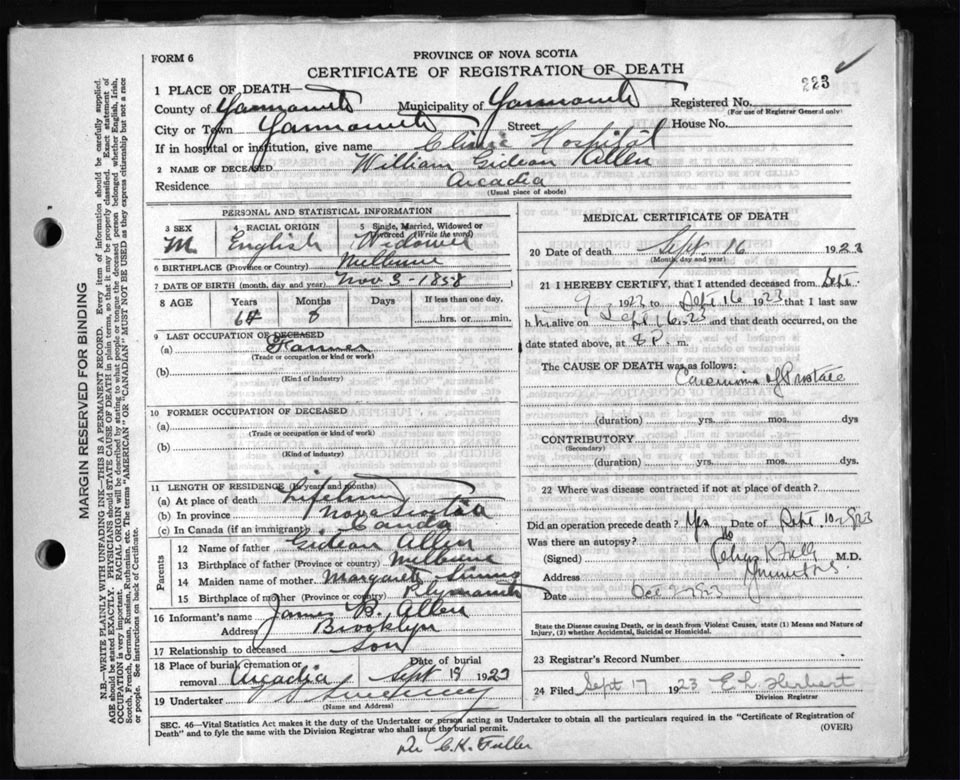 FORM 6
PROVINCE OF NOVA SCOTIA
CERTIFICATE OF REGISTRATION OF DEATH
223
1 PLACE OF DEATH—
County of Yarmouth Municipality of Yarmouth Registered No.
(For use of Registrar General only)
City or Town Yarmouth Street House No.
If in hospital or institution, give name Clinic Hospital
2 NAME OF DECEASED William Gideon Allen
Residence Arcadia
(Usual place of abode)
PERSONAL AND STATISTICAL INFORMATION
3 SEX 4 RACIAL ORIGIN 5 Single, Married, Widowed or Divorced (Write the word)
M English Widower
6 BIRTHPLACE (Province or Country) Melbourne
7 DATE OF BIRTH (month, day, and year) Nov 3-1858
8 AGE Years Months Days If less than one day,
64 hrs. or min.
9 LAST OCCUPATION OF DECEASED
(a) Farmer
(Trade or occupation or kind or work)
(b)
(Kind of industry)
10 FORMER OCCUPATION OF DECEASED
(a)
(Trade or occupation or kind or work)
(b)
(Kind of industry)
11 LENGTH OF RESIDENCE (in years and months)
(a) At place of death Lifetime
(b) In province Nova Scotia
(c) In Canada (if an immigrant) Canda
Parents
12 Name of father Gideon Allen
13 Birthplace of father (Province or country) Melbourne
14 Maiden name of mother Margaret
15 Birthplace of mother (Province or Country) Plymouth
16 Informant's name James B. Allen
Address Brooklyn
17 Relationship to deceased son
18 Place of burial cremation or removal Arcadia Date of burial Sept 19 1923
19 Undertaker Sweeney
(Name and Address)
MEDICAL CERTIFICATE OF DEATH
20 Date of death Sept. 16 1923
(Month, day and year)
21 I HEREBY CERTIFY, that I attended deceased from Sept.
9 1923 to Sept 16 1923 that I last saw
him alive on Sept 16. 23 and that death occurred, on the
date stated above, at 8 P. m.
The CAUSE OF DEATH was as follows:
Carcinoma of Prostate
(duration) yrs. mos. dys
CONTRIBUTORY
(Secondary)
(duration) yrs. mos. dys.
22 Where was disease contracted if not at place of death?
Did an operation precede death? Yes Date of Sept. 10-1923
Was there an autopsy? No
(Signed) Fuller M.D.
Address Yarmouth N.S.
Date Oct 2 1923
State the Disease causing Death, or in death from Violent Causes, state (1) Means and Nature of
Injury, (2) whether Accidental, Suicidal or Homicidal.
23 Registrar's Record Number
24 Filed Sept 17 1923 E L Herbert
Division Registrar
SEC. 46—Vital Statistics Act makes it the duty of the Undertaker or person acting as Undertaker to obtain all the particulars required in the "Certificate of Registration of
Death" and to fyle the same with the Division Registrar who shall issue the burial permit. (OVER)
Dr C.K. Fuller
MARGIN RESERVED FOR BINDING
N.B.—WRITE PLAINLY WITH UNFADING INK—THIS IS A PERMANENT RECORD. Every item of information should be carefully supplied.
AGE should be stated EXACTLY. PHYSICIANS should STATE CAUSE OF DEATH in plain terms, so that it may be properly classified. Exact statement of
OCCUPATION is very important. RACIAL ORIGIN will be described by stating to what people or tongue the deceased person belonged whether English, Irish,
Scotch, French, German, Russian, Ruthenian, etc. The terms "AMERICAN" OR "CANADIAN" MUST NOT BE USED as they express citizenship but not a race
or people. See instructions on back of Certificate.